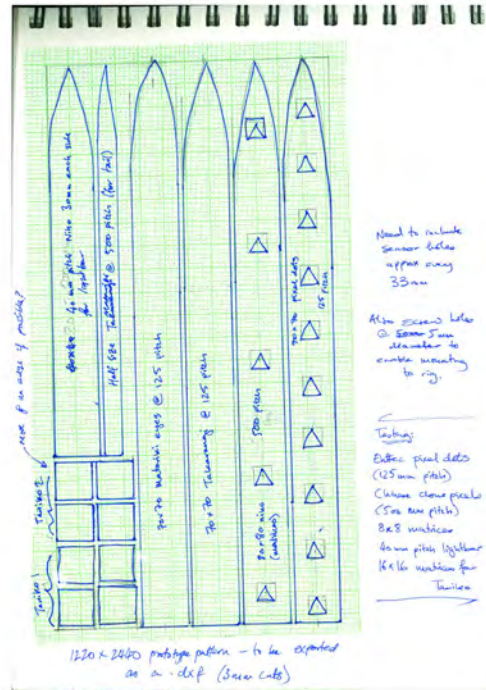 more of an area if possible?
Taniko 2
Taniko 1
40 mm pitch Niho 30mm each side
for lightbar
Half size @ 500 pitch (for tail)
70x70 Matariki eyes @ 125 pitch
70 x 70 @ 125 pitch
500 pitch
80x80 niho
(matrices)
70x70 pixel dots
125 pitch
Need to include
sensor holes
approx every
33mm
Also screw holes
@ 5mm
diameter to
enable mounting
to rig.
Testing:
Enttec pixel dots
(125mm pitch)
Chinese clone pixels
(500 mm pitch)
8x8 matrices
40mm pitch lightbar
16x16 matrices for
Taniko
1220 x 2440 prototype pattern – to be exported
as a .dxf (3mm cuts)